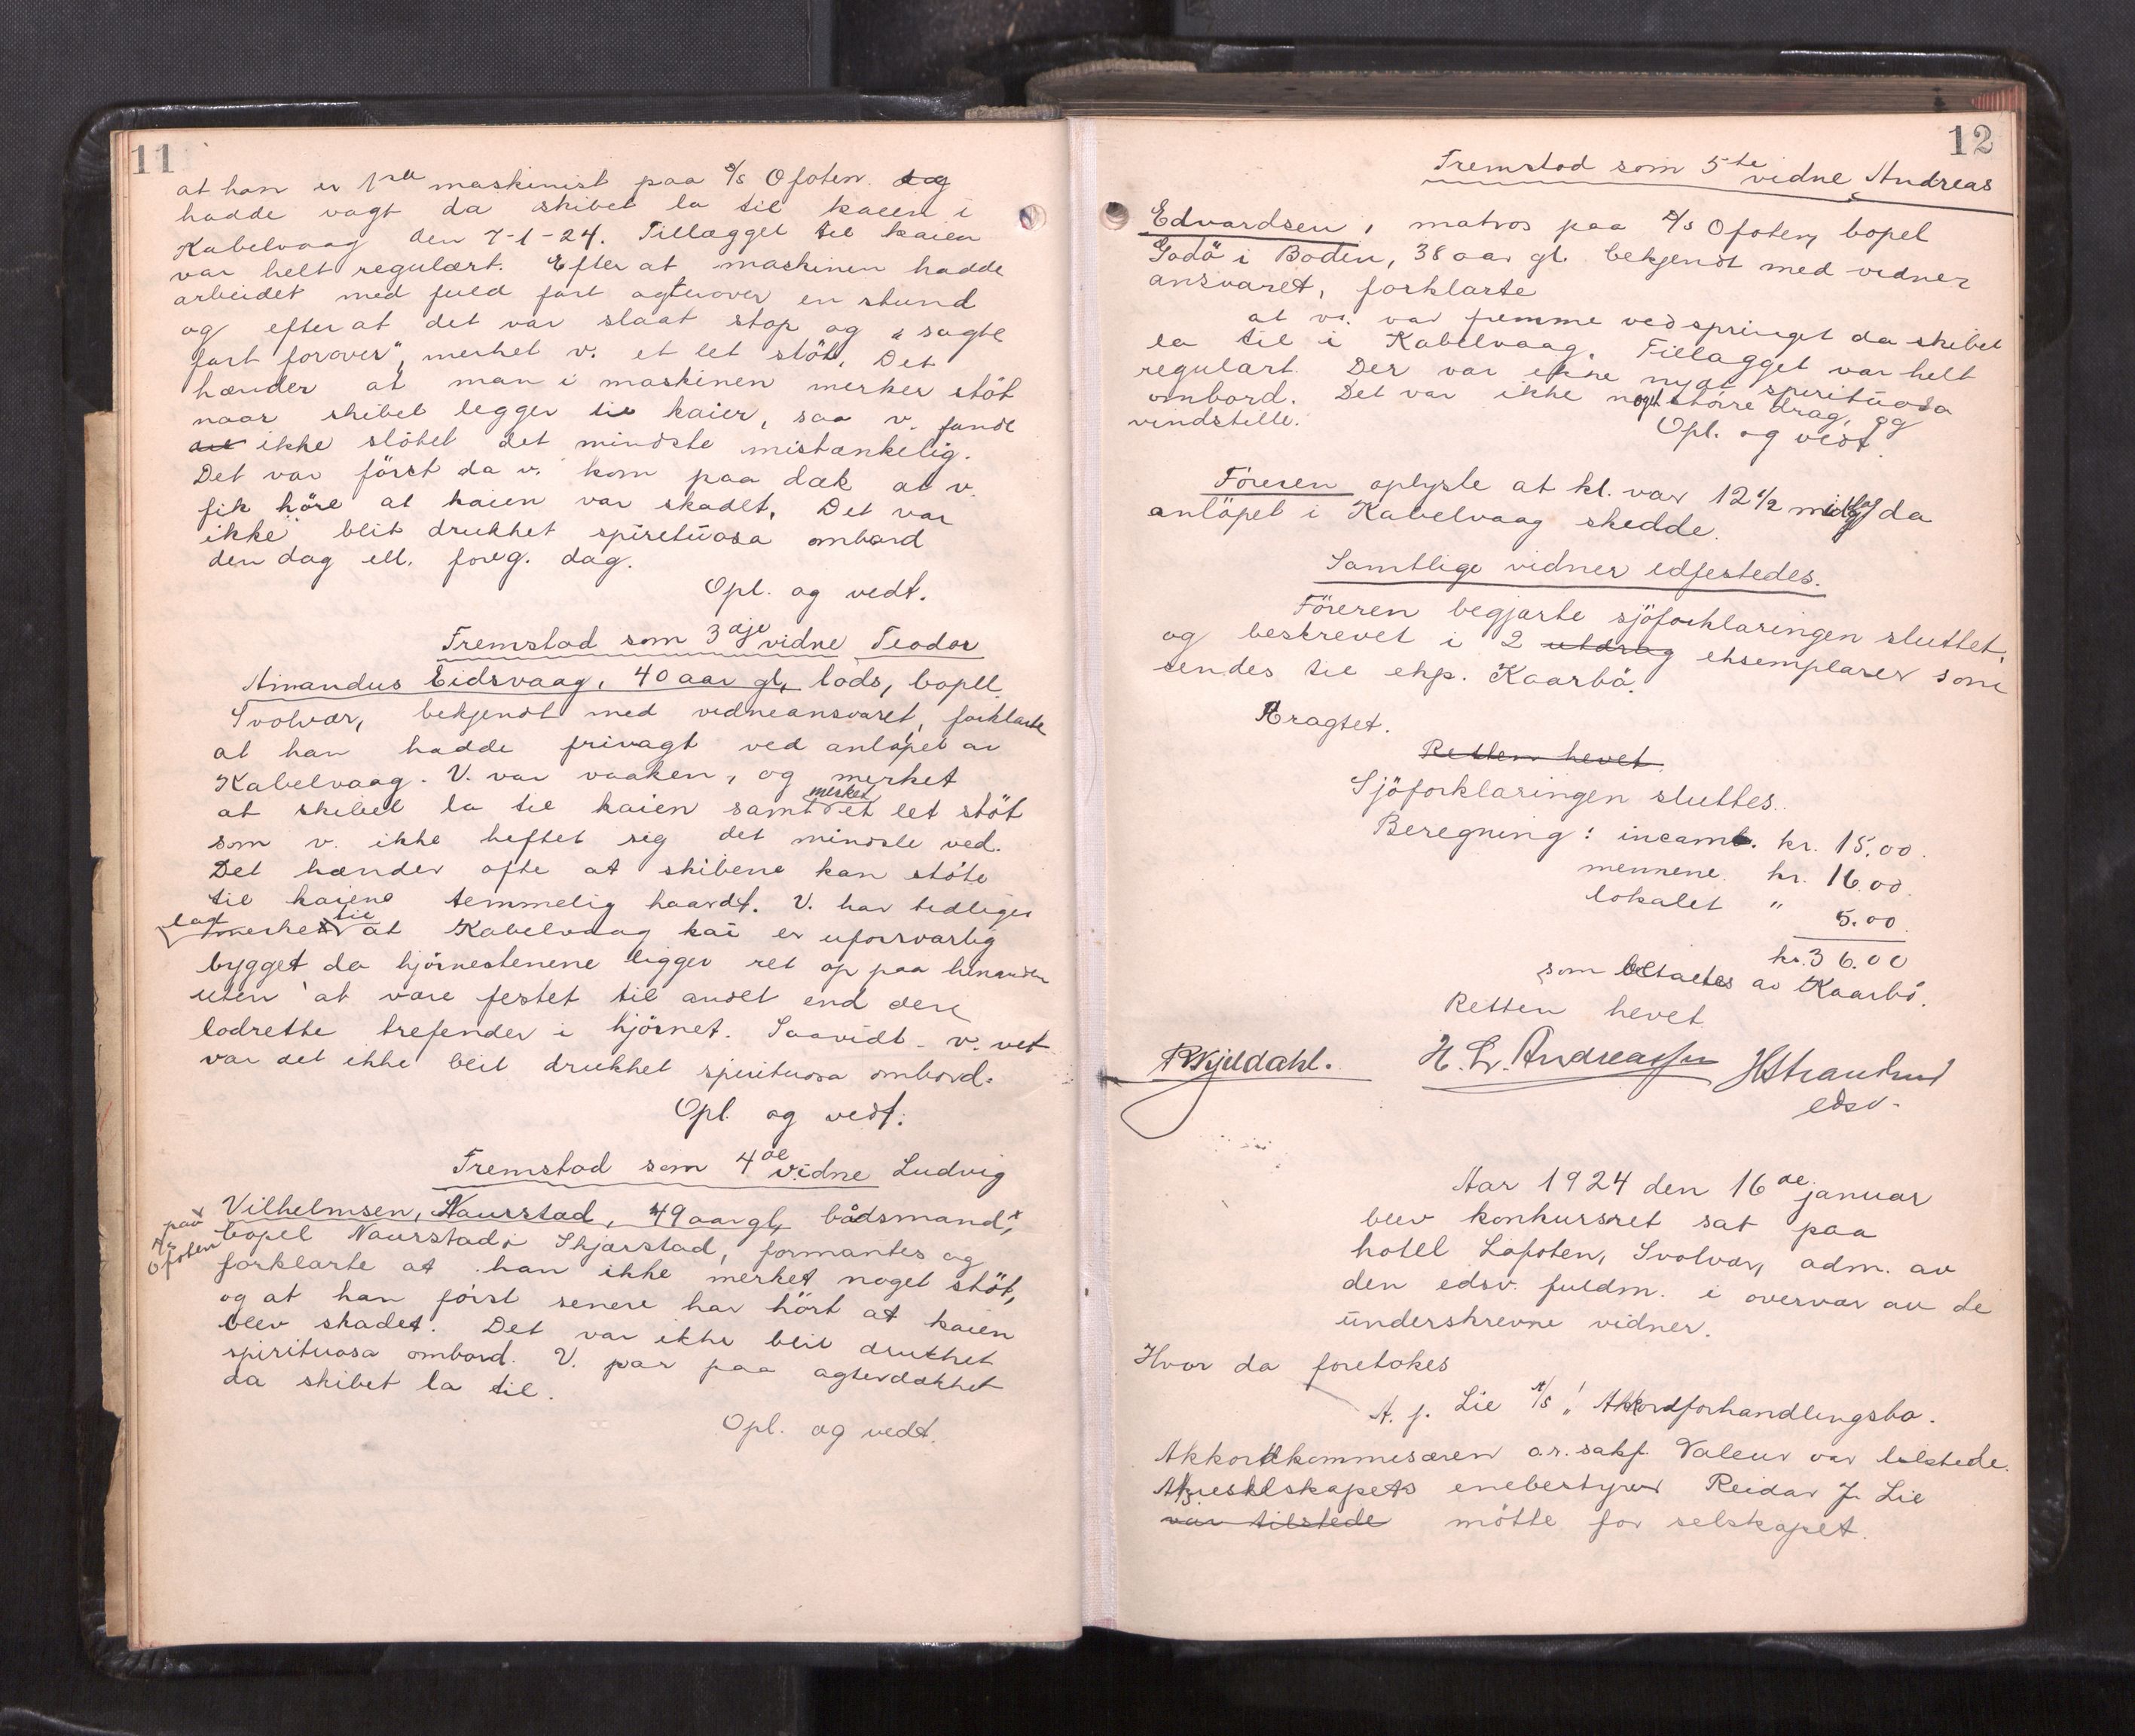 11
at han er 1ste maskinist paa s/s Ofoten. og
hadde vagt da skibet la til kaien i
Kabelvaag den 7-1-24. Tillægget til kaien
var helt regulært. Efter at maskinen hadde
arbeidet med fuld fart agterover en stund
og efter at det var slaat stop og "sagte
fart forover", merket v. et let stöt. Det
hænder at man i maskinen merker stöt
naar skibet legger til kaier, saa v. fandt
ikke stötet det mindste mistænkelig.
Det var först da v. kom paa dæk at v.
fik höre at kaien var skadet. Det var
ikke blit drukket spirituosa ombord
den dag ell. foreg. dag.
Opl. og vedt.
Fremstod som 3dje vidne Teodor
Amandus Eidsvaag, 40 aar gl, lods, bopel
Svolvær, bekjendt med vidneansvaret, forklarte
at han hadde frivagt ved anlöpet av
Kabelvaag. V. var vaaken, og merket
at skibet la til kaien samt merket et let stöt
som v. ikke heftet sig det mindste ved.
Det hænder ofte at skibene kan stöte
til kaiene temmelig haardt. V. har tidligere
lagt merke til at Kabelvaag kai er uforsvarlig
bygget da hjörnestenene ligger ret op paa hinanden
uten at være festet til andet end den
lodrette trefender i hjörnet. Saavidt v. vet
var det ikke blit drukket spirituosa ombord.
Opl. og vedt.
Fremstod som 4de vidne Ludvig
Vilhelmsen, Naurstad, 49 aar gl, bådsmand x,
x paa s/s Ofoten
bopel Naurstad i Skjærstad, formantes og
forklarte at han ikke merket noget stöt,
og at han först senere har hört at kaien
blev skadet. Det var ikke blit drukket
spirituosa ombord. V. var paa agterdækket
da skibet la til.
Opl. og vedt.
12
Fremstod som 5te vidne Andreas
Edvardsen, matros paa s/s Ofoten, bopel
Godö i Bodin, 38 aar gl. bekjendt med vidne-
ansvaret, forklarte
at v. var fremme ved springet da skibet
la til i Kabelvaag. Tillægget var helt
regulært. Der var ikke nydt spirituosa
ombord. Det var ikke noget större drag, og
vindstille.
Opl. og vedt.
Föreren oplyste at kl. var 12 1/2 middag da
anlöpet i Kabelvaag skedde.
Samtlige vidner edfestedes.
Föreren begjærte sjöforklaringen sluttet,
og beskrevet i 2 utdrag eksemplarer som
sendes til eksp. Kaarbö.
Eragtet.
Retten hevet.
Sjöforklaringen sluttes.
Beregning: incamb. kr. 15.00.
mennene. kr. 16.00.
lokalet " 5.00.
kr. 36.00
som betaltes av Kaarbö.
Retten hevet
H. L. Andreassen
edsv.
Aar 1924 den 16de januar
blev konkursret sat paa
hotel Lofoten, Svolvær, adm. av
den edsv. fuldm. i overvær av de
underskrevne vidner.
Hvor da foretokes
A. J. Lie A/S' Akkordforhandlingsbo.
Akkordkommissæren o.r. sakf. Valeur var tilstede.
Aktieselskapets enebestyrer Reidar J. Lie
var tilstede mötte for selskapet.